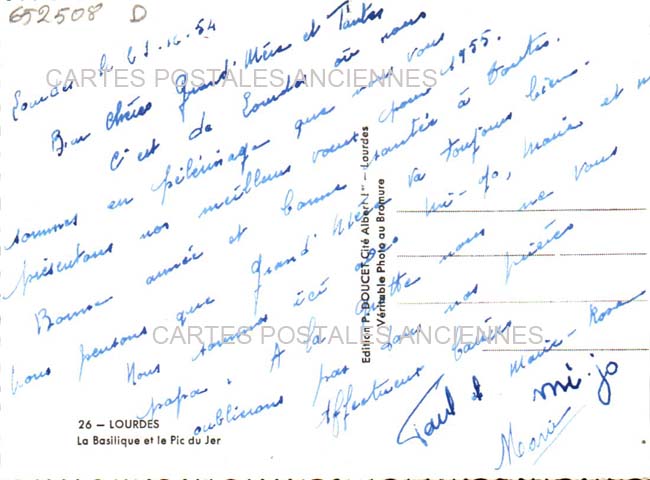 652508 D
Lourdes le 29.12.54
Bien Chères Grand-Mère et Tantes
C'est de Lourdes où nous
sommes en pélérinage que nous vous
présentons nos meilleurs voeux pour 1955.
Bonne année et bonne santée à toutes.
Nous pensons que Grand'Mère va toujours bien.
Nous sommes ici avec mi-jo, Marie et
papa. A la Grotte nous ne vous
oublierons pas dans nos prières
Affectueux baisers
Paul & Marie-Rose
mi-jo
Marie
CARTES POSTALES ANCIENNES
CARTES POSTALES ANCIENNES
Edition P. DOUCET Cité Albert Ier – Lourdes
Véritable Photo au Bromure
26 – LOURDES
La Basilique et le Pic du Jer